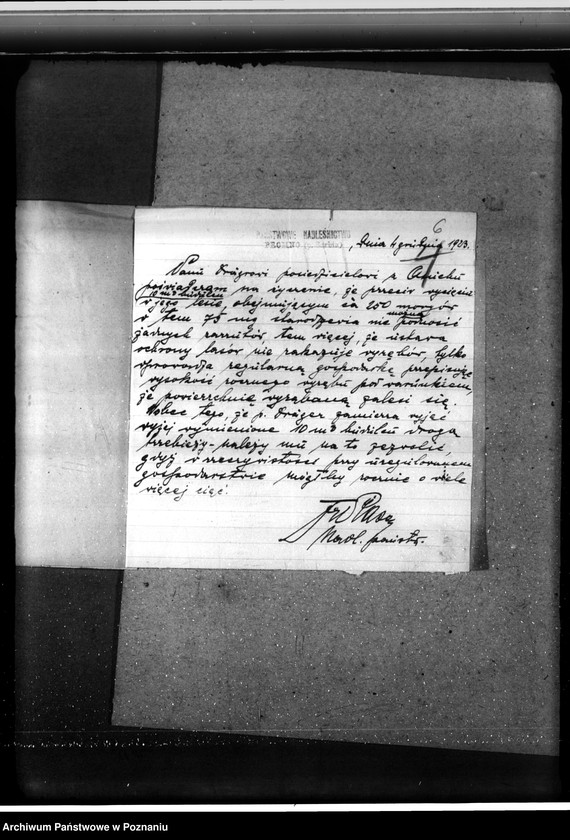 6
PAŃSTWOWE NADLEŚNICTWO
PROMNO
, Dnia 4 grudnia 1923.
Panu Drägrowi posiedzicielowi z
poświadczam na życzenie, że przeciw wycięciu
10 m3 budulcu
w jego lesie obejmującym ca 250 morgów
w tem 75 mg starodrzewia nie można podnosić
żadnych zarzutów, tem więcej, że ustawa
ochrony lasów nie zakazuje wyrębów, tylko
wprowadza regularną gospodarkę przepisując
wysokość rocznego wyrębu pod warunkiem,
że powierzchnie wyrąbaną zalesi się.
Wobec tego, że p. Dräger zamierza wyjąć
wyżej wymienione 10 m3 budulcu drogą
trzebieży - należy mu na to zezwolić,
gdyż w rzeczywistości przy uregulowanem
gospodarstwie mógłby rocznie o wiele
więcej ciąć.
Nadl. państw.